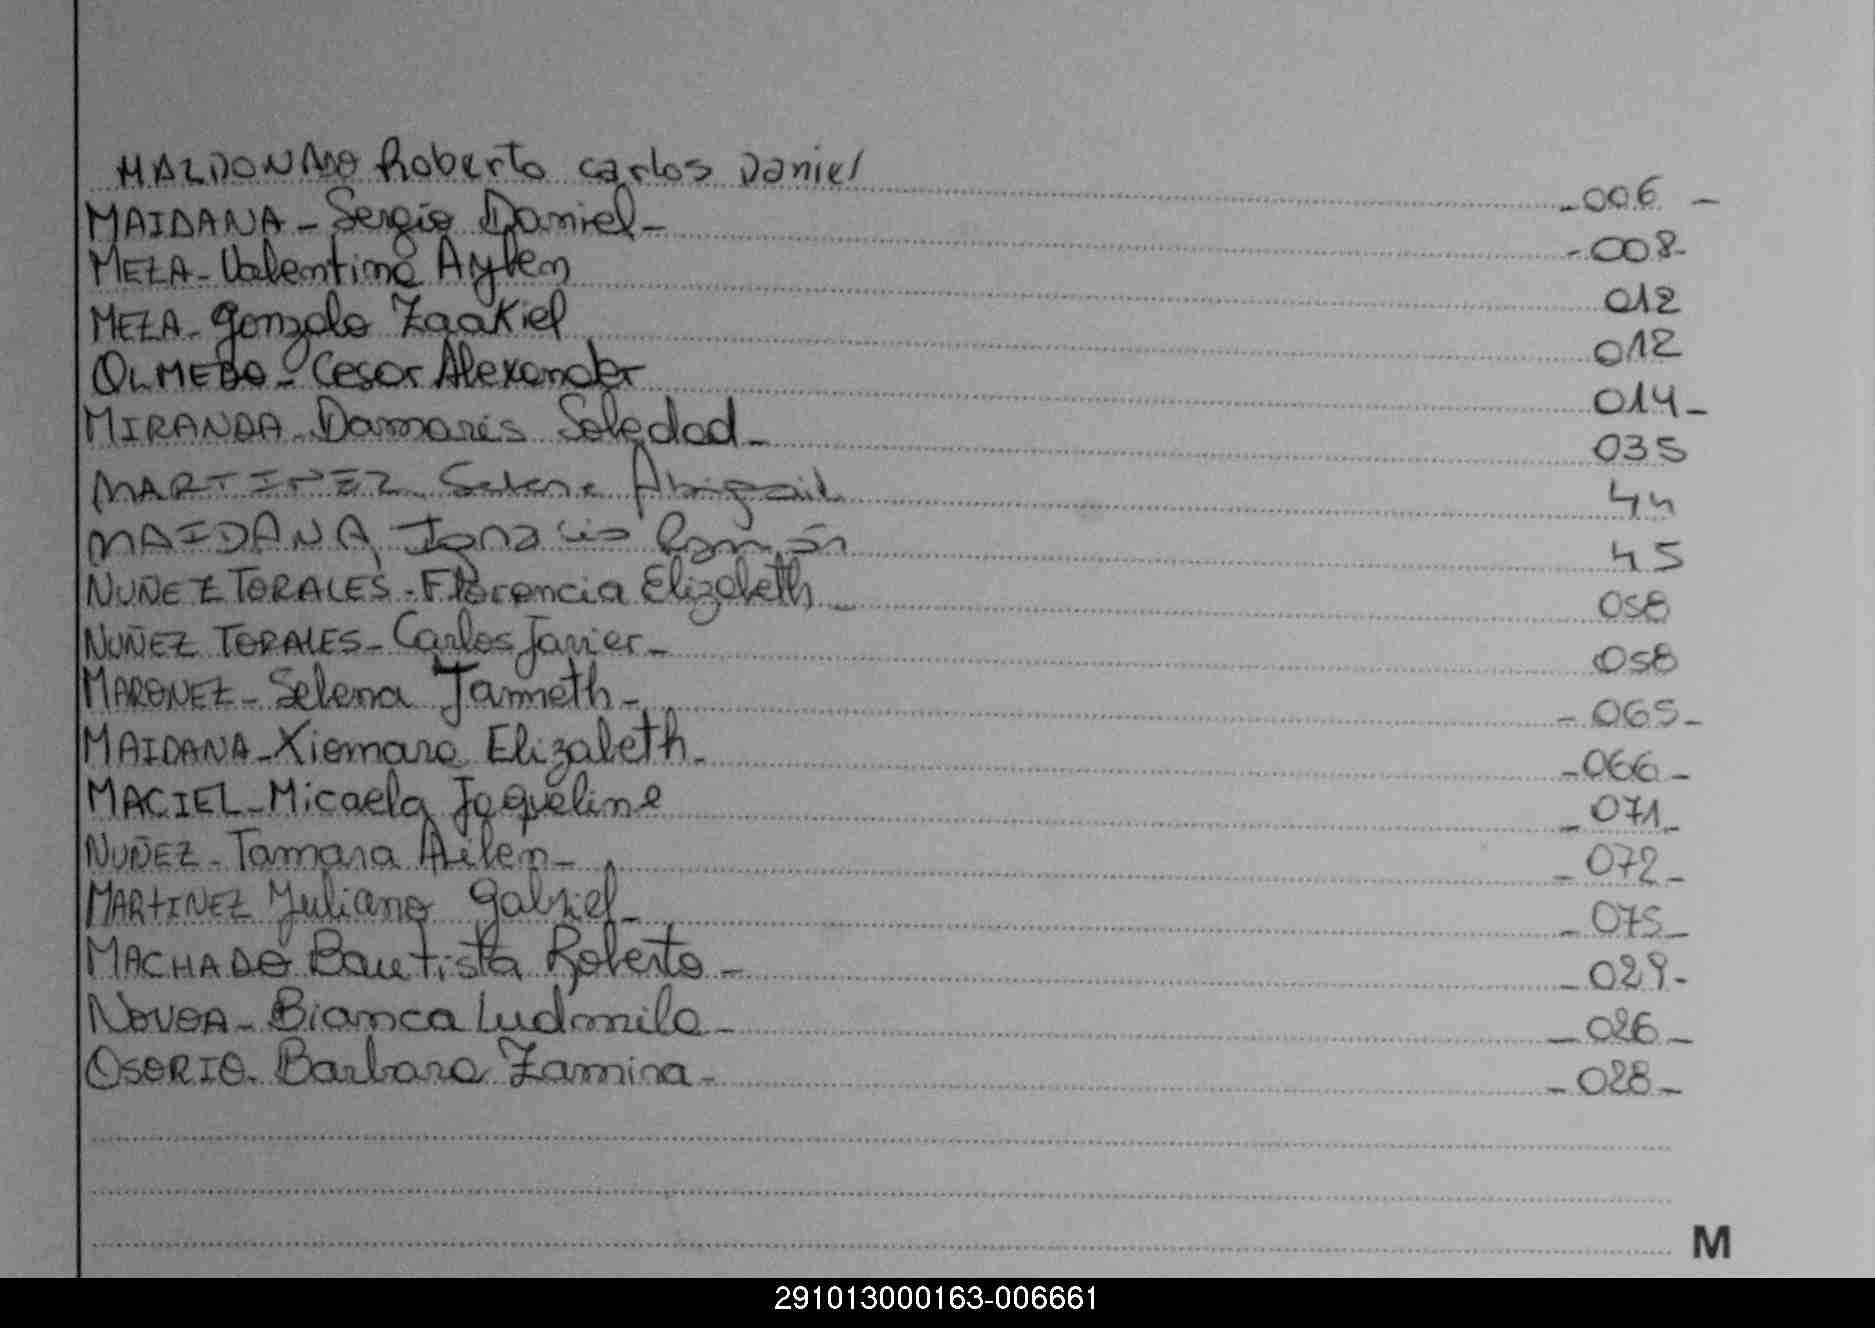 MALDONADO Roberto Carlos Daniel 006 -
MAIDANA - Sergio Daniel - - 008 -
MEZA - Valentina Aylen 012
MEZA - Gonzalo Zaakiel 012
OLMEDO - Cesar Alexander 014 -
MIRANDA - Damaris Soledad - 035
MARTINEZ Selene Abigail 44
MAIDANA, Ignacio Román 45
NUÑEZ TORALES - Florencia Elizabeth - 058
NUÑEZ TORALES - Carlos Javier - 058
MARONEZ - Selena Janneth - - 065 -
MAIDANA - Xiomara Elizabeth - - 066 -
MACIEL - Micaela Jaqueline - 071 -
NUÑEZ - Tamara Ailen - - 072 -
MARTINEZ Juliano Gabriel - - 075 -
MACHADO Bautista Roberto - - 029 -
NOVOA - Bianca Ludmila - - 026 -
OSORIO - Barbara Zamira - - 028 -
M
291013000163-006661